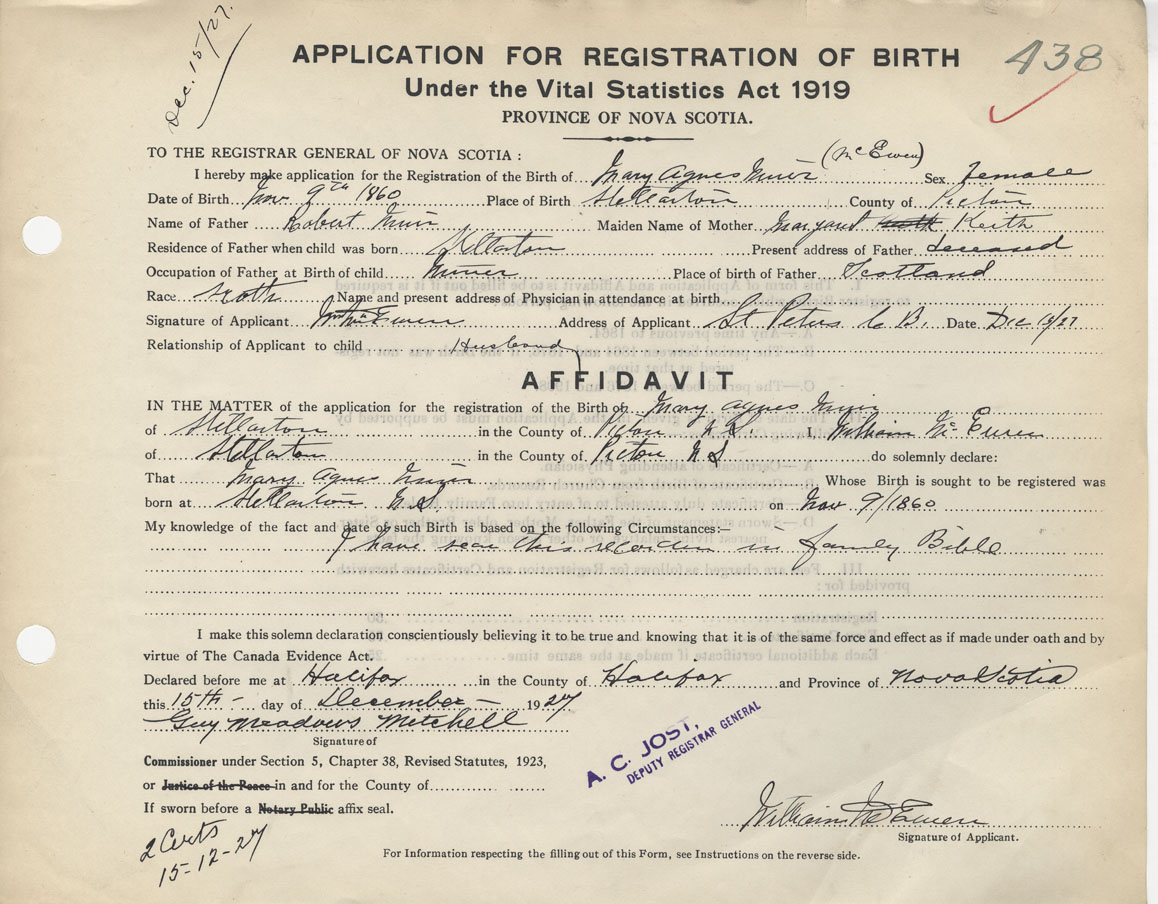 Dec. 15/27.
438
APPLICATION FOR REGISTRATION OF BIRTH
Under the Vital Statistics Act 1919
PROVINCE OF NOVA SCOTIA.
TO THE REGISTRAR GENERAL OF NOVA SCOTIA :
(McEwen)
I hereby make application for the Registration of the Birth of Mary Agnes Muir Sex Female
Date of Birth Nov 9th 1860 Place of Birth Stellarton County of Pictou
Name of Father Robert Muir Maiden Name of Mother Margaret Keith
Residence of Father when child was born Stellarton Present address of Father deceased
Occupation of Father at Birth of child Miner Place of birth of Father Scotland
Race Scotch Name and present address of Physician in attendance at birth
Signature of Applicant Wm McEwen Address of Applicant St. Peters C B. Date Dec /27
Relationship of Applicant to child Husband
AFFIDAVIT
IN THE MATTER of the application for the registration of the Birth of Mary Agnes Muir
of Stellarton in the County of Pictou N. S. I, William McEwen
of Stellarton in the County of Pictou N S do solemnly declare:
That Mary Agnes Muir Whose Birth is sought to be registered was
born at Stellarton N.S. on Nov 9/1860
My knowledge of the fact and date of such Birth is based on the following Circumstances:—
I have seen this recorded in family Bible
I make this solemn declaration conscientiously believing it to be true and knowing that it is of the same force and effect as if made under oath and by
virtue of The Canada Evidence Act.
Declared before me at Halifax in the County of Halifax and Province of Nova Scotia
this 15th - day of December - 1927
Guy Meadows Mitchell
Signature of
Commissioner under Section 5, Chapter 38, Revised Statutes, 1923,
or Justice of the Peace in and for the County of
If sworn before a Notary Public affix seal.
A. C. JOST,
DEPUTY REGISTRAR GENERAL
William McEwen
Signature of Applicant.
2 Certs
15-12-27
For Information respecting the filling out of this Form, see Instructions on the reverse side.